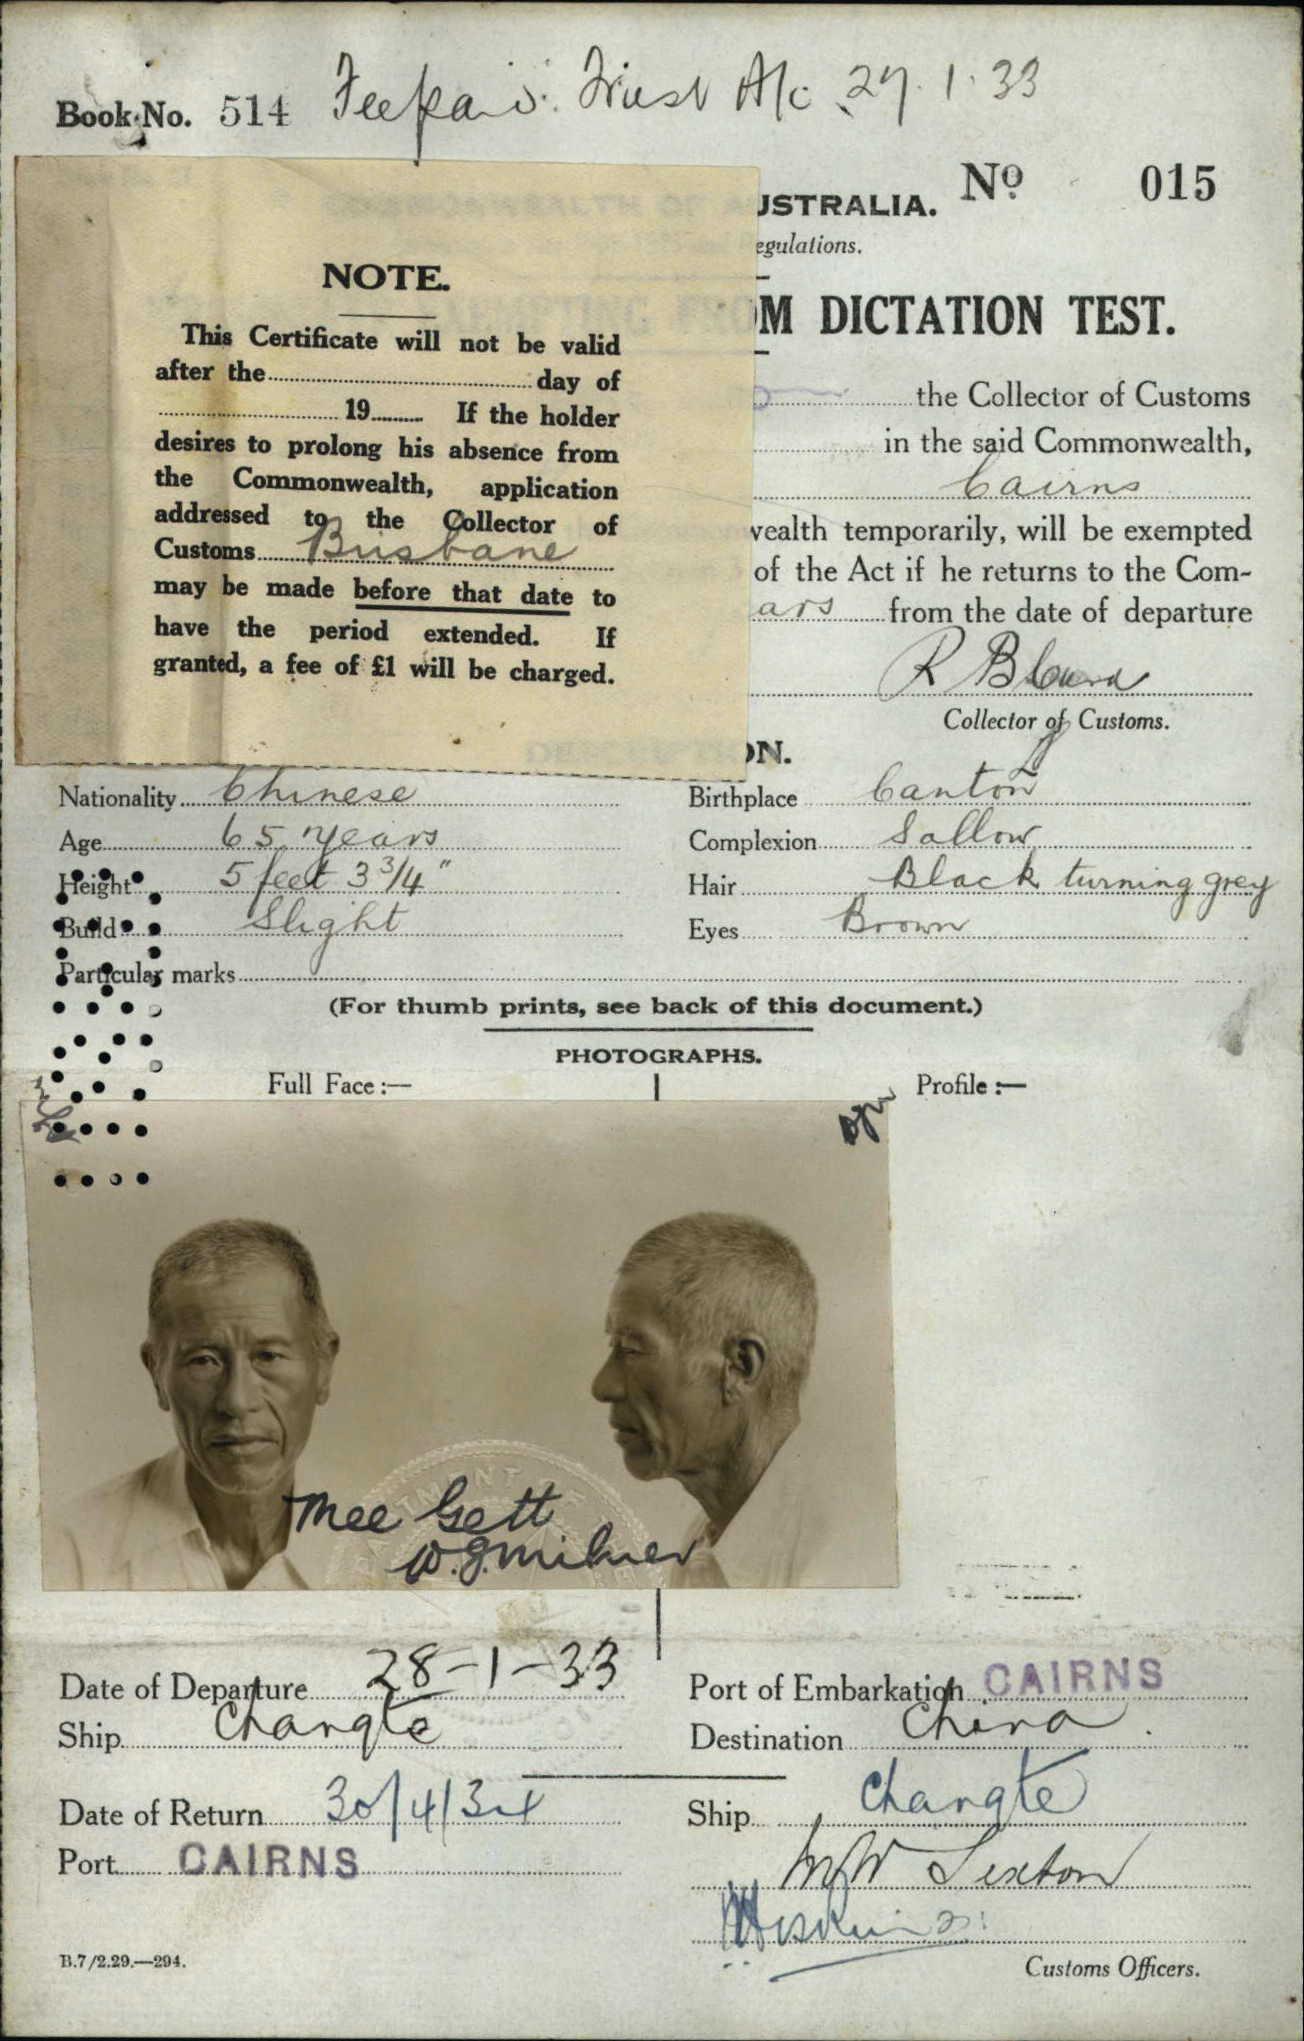 Book No. 514 Fee paid. Trust A/c 27.1.33
USTRALIA. No. 015
egulations.
OM DICTATION TEST.
NOTE.
This Certificate will not be valid
after the day of
19 If the holder
desires to prolong his absence from
the Commonwealth, application
addressed to the Collector of
Customs Brisbane
may be made before that date to
have the period extended. If
granted, a fee of £1 will be charged.
the Collector of Customs
in the said Commonwealth,
Cairns
wealth temporarily, will be exempted
of the Act if he returns to the Com-
ars from the date of departure
Collector of Customs.
ON.
Nationality Chinese Birthplace Canton
Age 65 years Complexion Sallow
Height 5 feet 3 3/4" Hair Black turning grey
Build Slight Eyes Brown
Particular marks
(For thumb prints, see back of this document.)
PHOTOGRAPHS.
Full Face :— Profile :—
Mee Gett
W.J. Milner
Date of Departure 28-1-33 Port of Embarkation CAIRNS
Ship Changte Destination China.
Date of Return 30/4/34 Ship Changte
Port CAIRNS
Customs Officers.
B.7/2.29.—294.